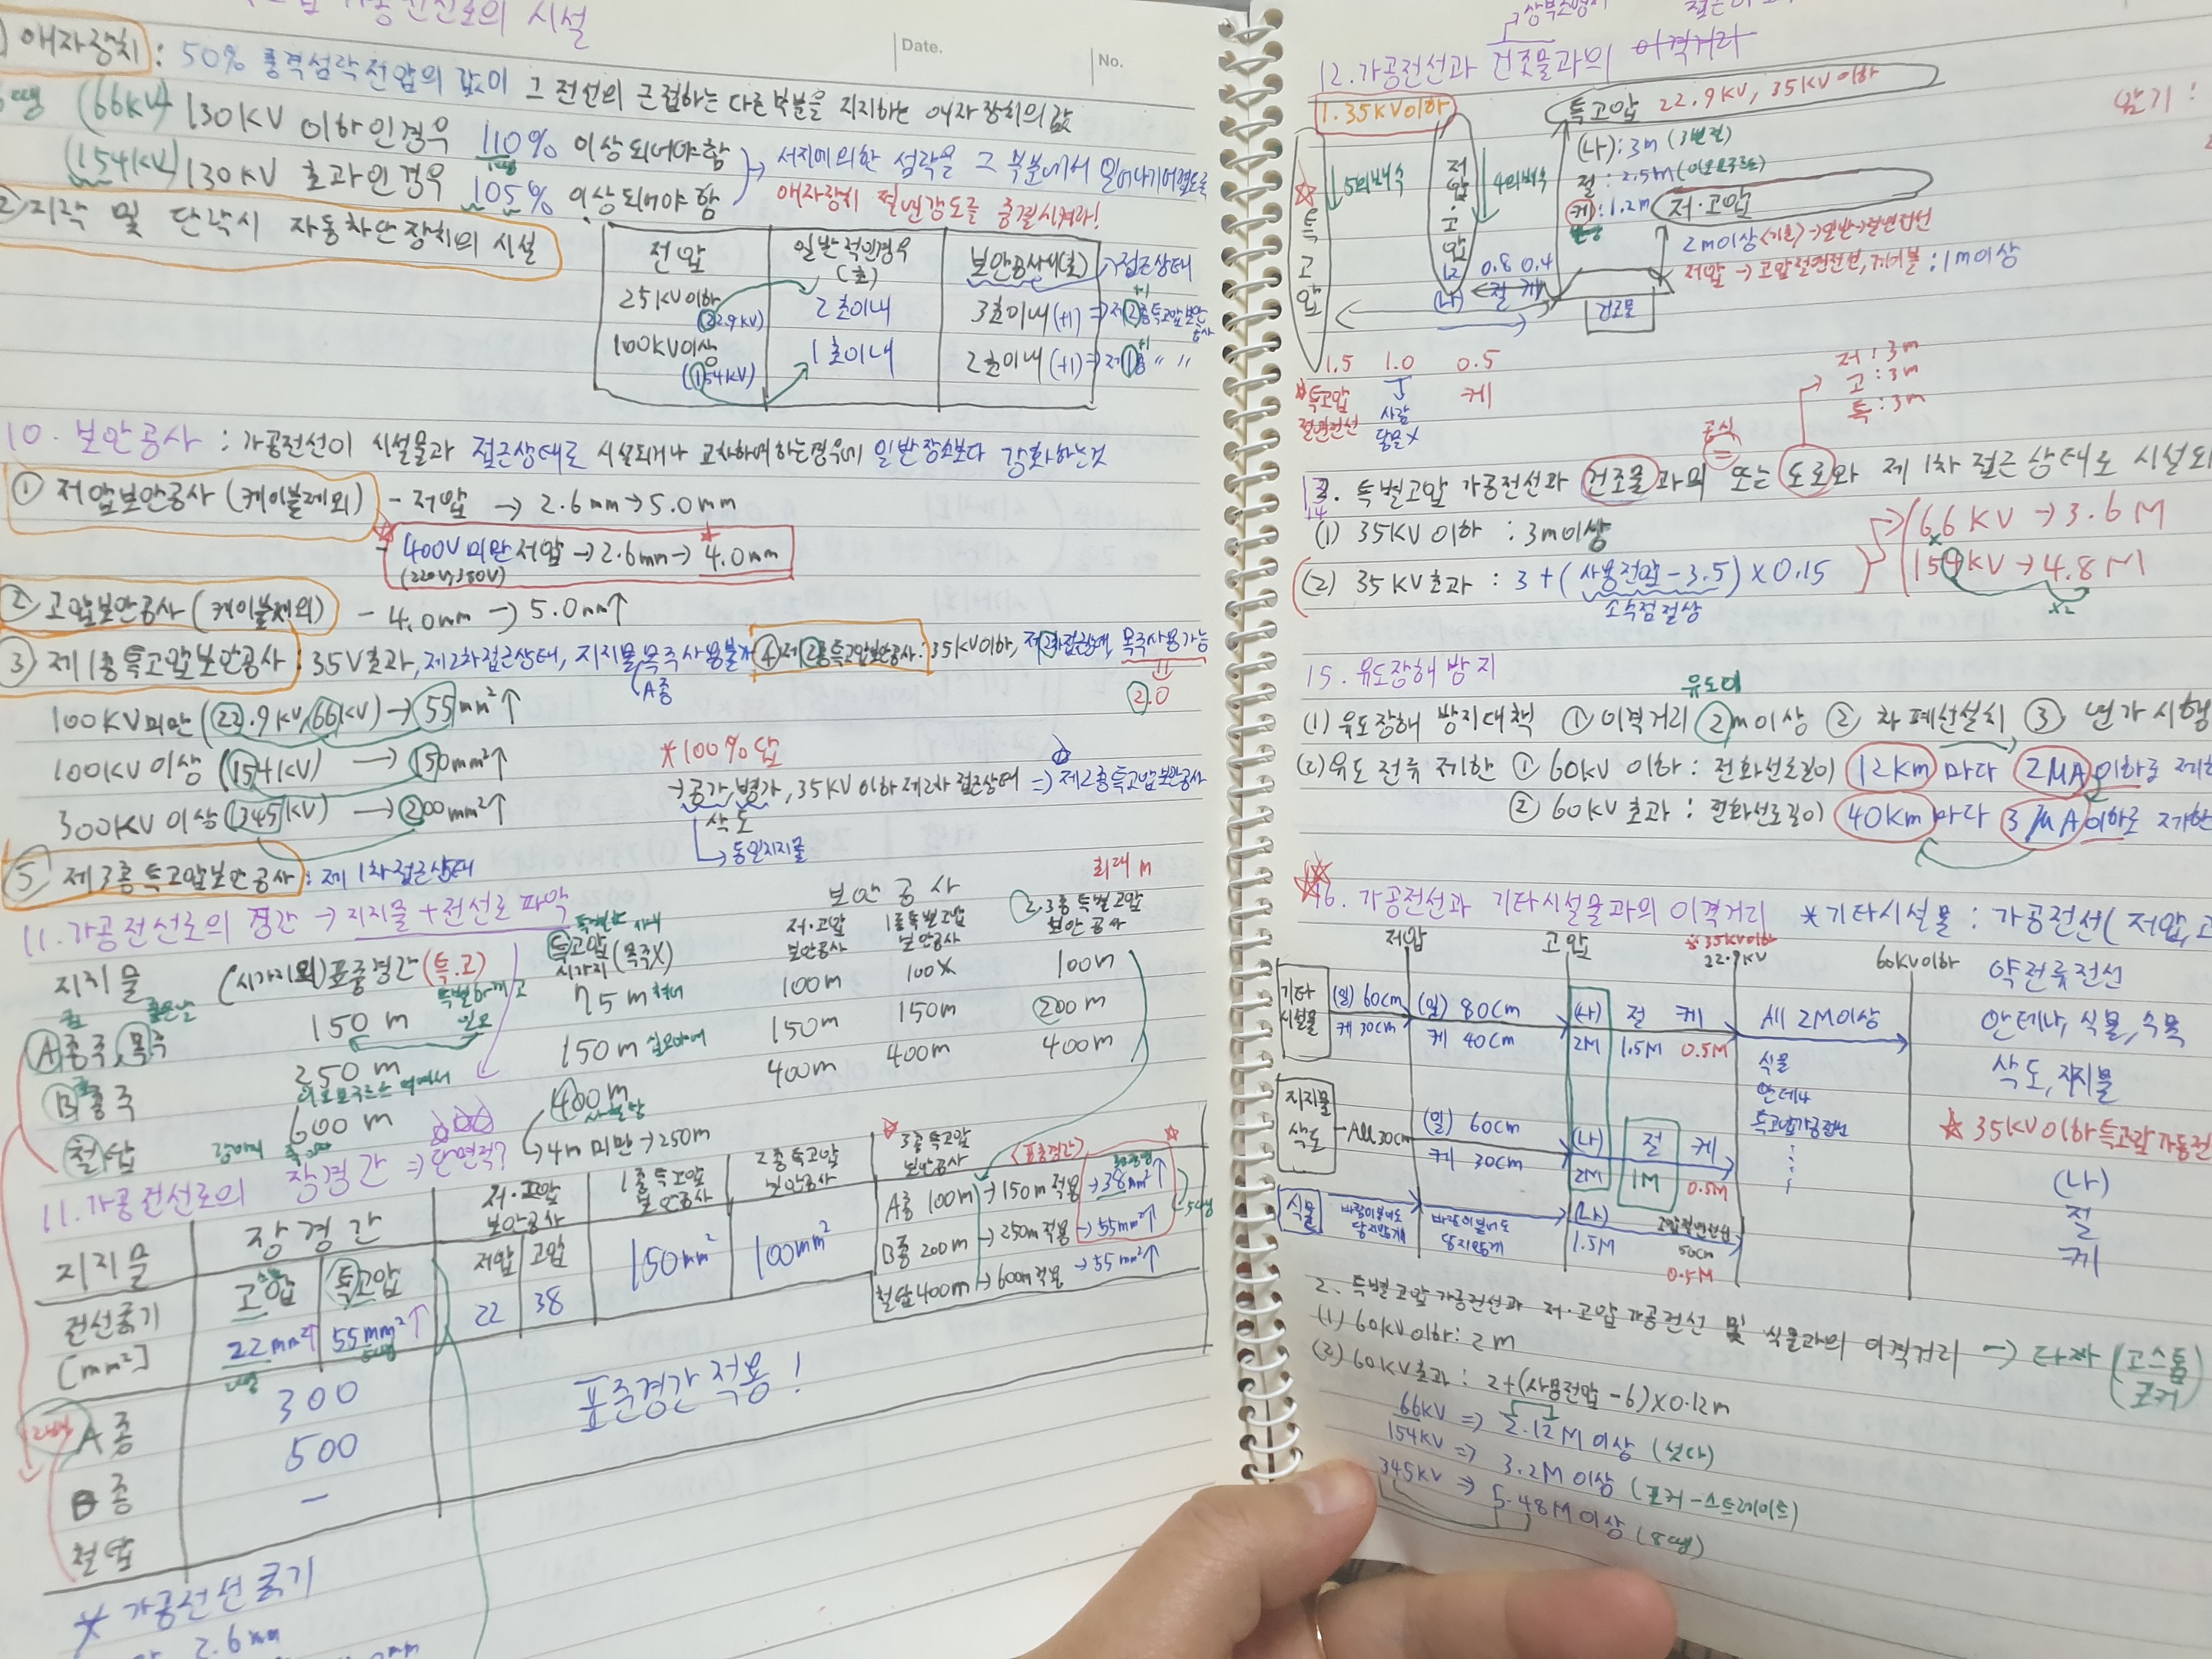 가공전선로의 시설
Date.
No.
애자장치 : 50% 충격섬락전압의 값이 그 전선의 근접하는 다른 부분을 지지하는 애자장치의 값
(66KV) 130KV 이하인경우 110% 이상되어야함
(154KV) 130KV 초과인경우 105% 이상되어야함
→ 서지에의한 섬락을 그 부분에서 일어나기
애자장치 절연강도를 증절시켜라!
지락 및 단락시 자동차단장치의 시설
전압 일반적인경우(초) 보안공사시(초) →접근상태
25KV이하 (22.9KV) 2초이내 3초이내(+1) ⇒제2종특고압보안공사
100KV이상 (154KV) 1초이내 2초이내(+1)⇒제1종 〃 〃
10. 보안공사 : 가공전선이 시설물과 접근상태로 시설되거나 교차하는경우에 일반장소보다 강화하는것
① 저압보안공사 (케이블제외) - 저압 → 2.6mm → 5.0mm
- 400V미만저압 → 2.6mm → 4.0mm
② 고압보안공사 (케이블제외) - 4.0mm → 5.0mm↑
③ 제1종특고압보안공사 : 35V초과, 제2차접근상태, 지지물목주사용불가
A종
④ 제2종특고압보안공사 : 35KV이하, 제2차접근상태, 목주사용가능
2.0
100KV미만 (22.9KV, 66KV) → 55mm²↑
100KV이상 (154KV) → 150mm²↑
300KV이상 (345KV) → 200mm²↑
*100%답
→공가, 병가, 35KV이하 제2차 접근상태 ⇒ 제2종특고압보안공사
삭도
→동일지지물
⑤ 제3종특고압보안공사 : 제1차접근상태
11. 가공전선로의 경간 → 지지물+전선로 파악
최대 m
보안공사
지지물 (시가지외)표준경간(특.고) 특고압 시가지(목주X) 저·고압 보안공사 1종특별고압 보안공사 2,3종특별고압 보안공사
A종주, 목주 150m 75m 100m 100X 100m
B종주 250m 150m 150m 150m 200m
철탑 600m 400m 400m 400m 400m
→4m 미만→250m
11. 가공전선로의 장경간 ⇒단면적?
지지물 장경간 저·고압 보안공사 1종특고압 보안공사 2종특고압 보안공사 3종특고압 보안공사 <표준경간>
전선굵기 [mm²] 고압 특고압 저압 고압 150mm² 100mm²
22mm²↑ 55mm²↑ 22 38
A종 100m →150m적용 →38mm²↑
B종 200m →250m적용 →55mm²↑
철탑 400m →600m적용 →55mm²↑
A종 300
B종 500
철탑 —
표준경간적용!
* 가공전선굵기
2.6mm
12. 가공전선과 건조물과의 이격거리
1. 35KV이하
특고압 22.9KV, 35KV이하
(나) : 3m (3번전)
절 : 2.5m
케 : 1.2m
저·고압
2m이상
저압 → 고압절연전선, 케이블 : 1m이상
특고압
5의배수
저압·고압
4의배수
1.2 0.8 0.4
(나) 절 케
건조물
1.5 1.0 0.5
특고압 절연전선
사람 닿음X
케
저 : 3m
고 : 3m
특 : 3m
공식
특별고압 가공전선과 건조물과의 또는 도로와 제1차접근상태로 시설되
14
(1) 35KV이하 : 3m이상
(2) 35KV초과 : 3+(사용전압-3.5)×0.15
소수점절상
66KV→3.6M
154KV→4.8M
x2
15. 유도장해 방지
(1) 유도장해 방지대책 ① 이격거리 2m이상 ② 차폐선설치 ③ 연가시행
(2) 유도전류 제한 ① 60KV이하 : 전화선로길이 12Km마다 2μA이하로 제한
② 60KV초과 : 전화선로길이 40Km마다 3μA이하로 제한
16. 가공전선과 기타시설물과의 이격거리 *기타시설물 : 가공전선(저압,고
저압 고압 35KV이하 22.9KV 60KV이하
기타시설물 (일) 60cm (일) 80cm (나) 절 케 All 2M이상
케30cm 케40cm 2M 1.5M 0.5M
지지물 삭도 All30cm (일) 60cm (나) 절 케
케30cm 2M 1M 0.5M
식물 바람이불어도 닿지않게 바람이불어도 닿지않게 (나) 고압절연전선
1.5M 50cm
0.5M
식물
안테나
특고압가공전선
약전류전선
안테나, 식물, 수목
삭도, 지지물
35KV이하특고압가공전
(나)
절
케
2. 특별고압가공전선과 저·고압가공전선 및 식물과의 이격거리 → 타짜 (고스톱 포커
(1) 60KV이하 : 2m
(2) 60KV초과 : 2+(사용전압-6)×0.12m
66KV ⇒ 2.12M이상 (섯다)
154KV ⇒ 3.2M이상 (포커-스트레이트)
345KV ⇒ 5.48M이상 (8땡)